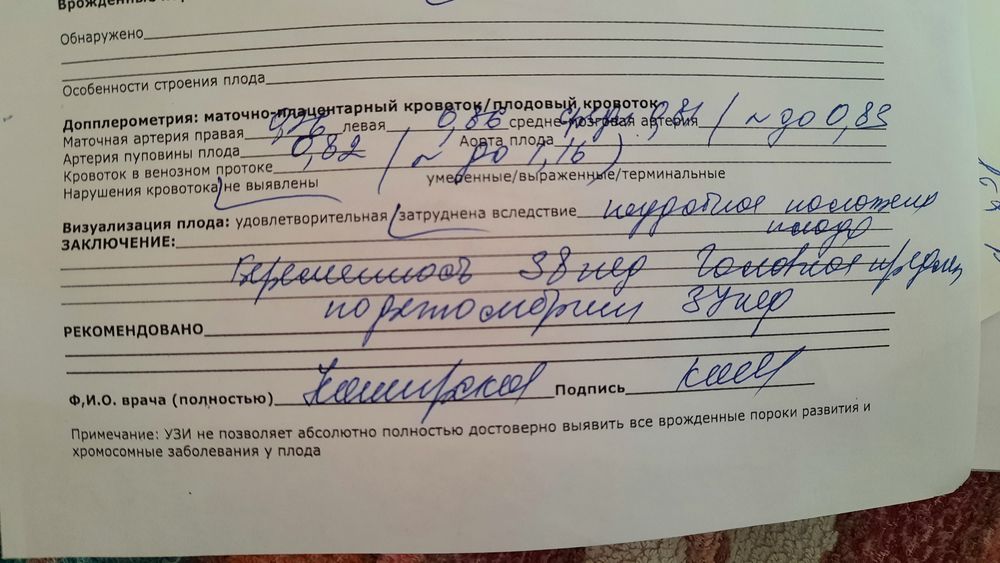 Обнаружено
Особенности строения плода
Допплерометрия: маточно-плацентарный кровоток/плодовый кровоток
Маточная артерия правая левая 0,86 средне-мозговая артерия 0,81 / ~ до 0,83
Артерия пуповины плода 0,82 Аорта плода
Кровоток в венозном протоке ( ~ до 1,16 )
Нарушения кровотока не выявлены умеренные/выраженные/терминальные
Визуализация плода: удовлетворительная затруднена вследствие неудобное положение
плода
ЗАКЛЮЧЕНИЕ:
Беременность 38 нед Головное
по фетометрии нед
РЕКОМЕНДОВАНО
Ф,И.О. врача (полностью) Подпись
Примечание: УЗИ не позволяет абсолютно полностью достоверно выявить все врожденные пороки развития и
хромосомные заболевания у плода